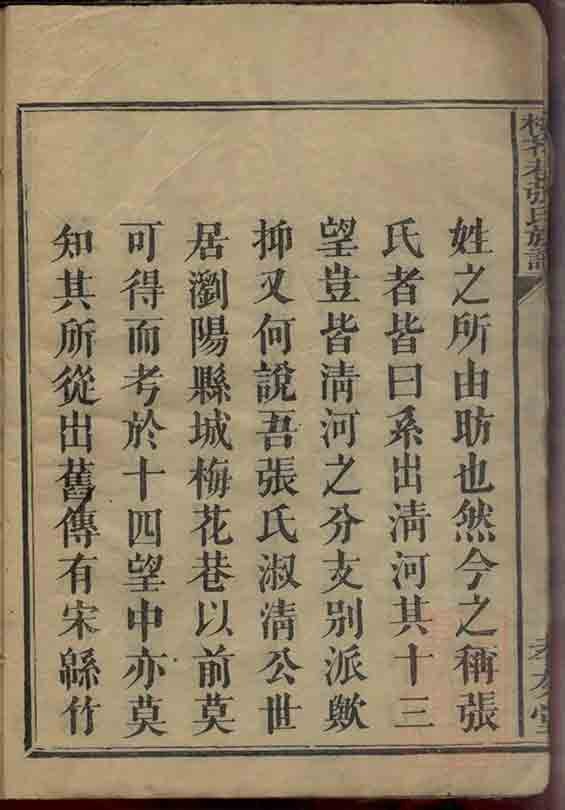 梅花巷張氏族譜
姓之所由昉也然今之稱張
氏者皆曰系出清河其十三
望豈皆清河之分支别派歟
抑又何說吾張氏淑清公世
居瀏陽縣城梅花巷以前莫
可得而考於十四望中亦莫
知其所從出舊傳有宋緜竹
孝友堂